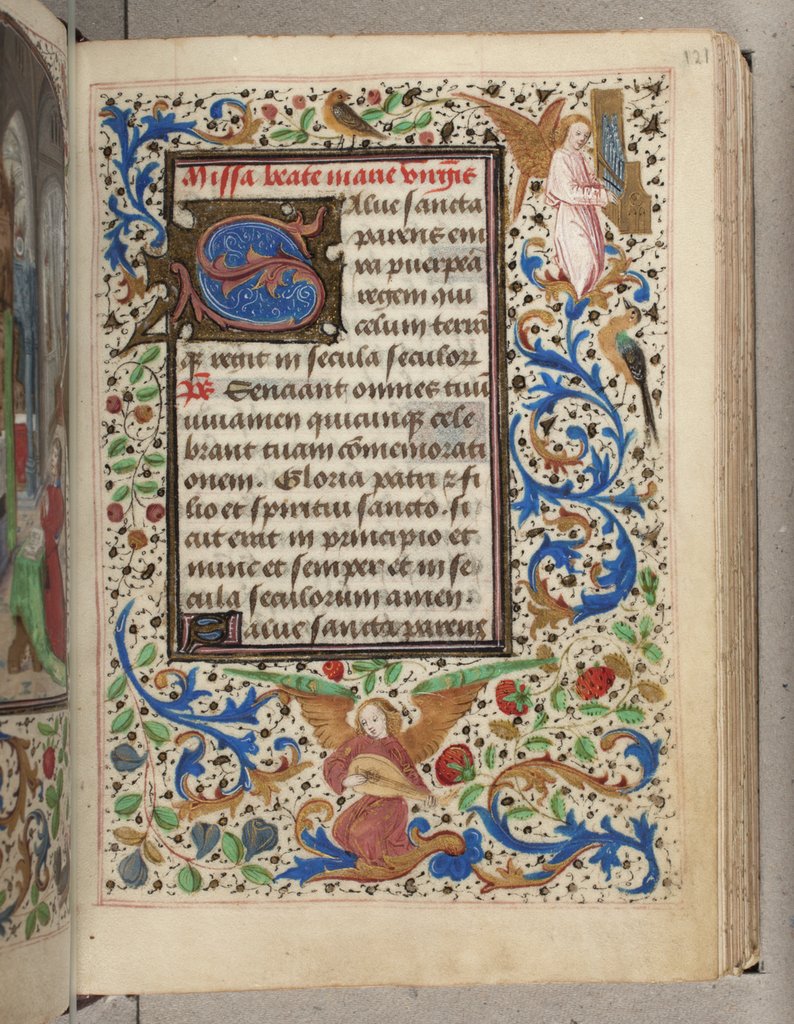 121
Missa beate marie virgīs
Salue sancta
parens eni
xa puerpēa
regem qui
celum terrā
qȝ regit in secula seculorꝝ
Ps̄ Senciant omnes tuū
iuuamen quicunqȝ cele
brant tuam cōmemorati
onem. Gloria patri ⁊ fi
lio et spiritui sancto. si
cut erat in principio et
nunc et semper et in se
cula seculorum amen.
Salue sancta parens